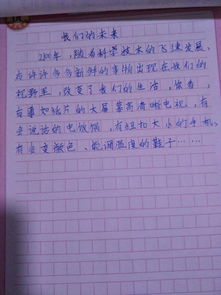 我们的未来
2200年,随着科学技术的飞速发展,
有许许多多新鲜的事物出现在我们的
视野里,改变了我们的生活,你看,
有薄如纸片的大屏幕高清晰电视,有
会说话的电饭锅,有纽扣大小的手机,
有会变颜色、能调温度的鞋子……